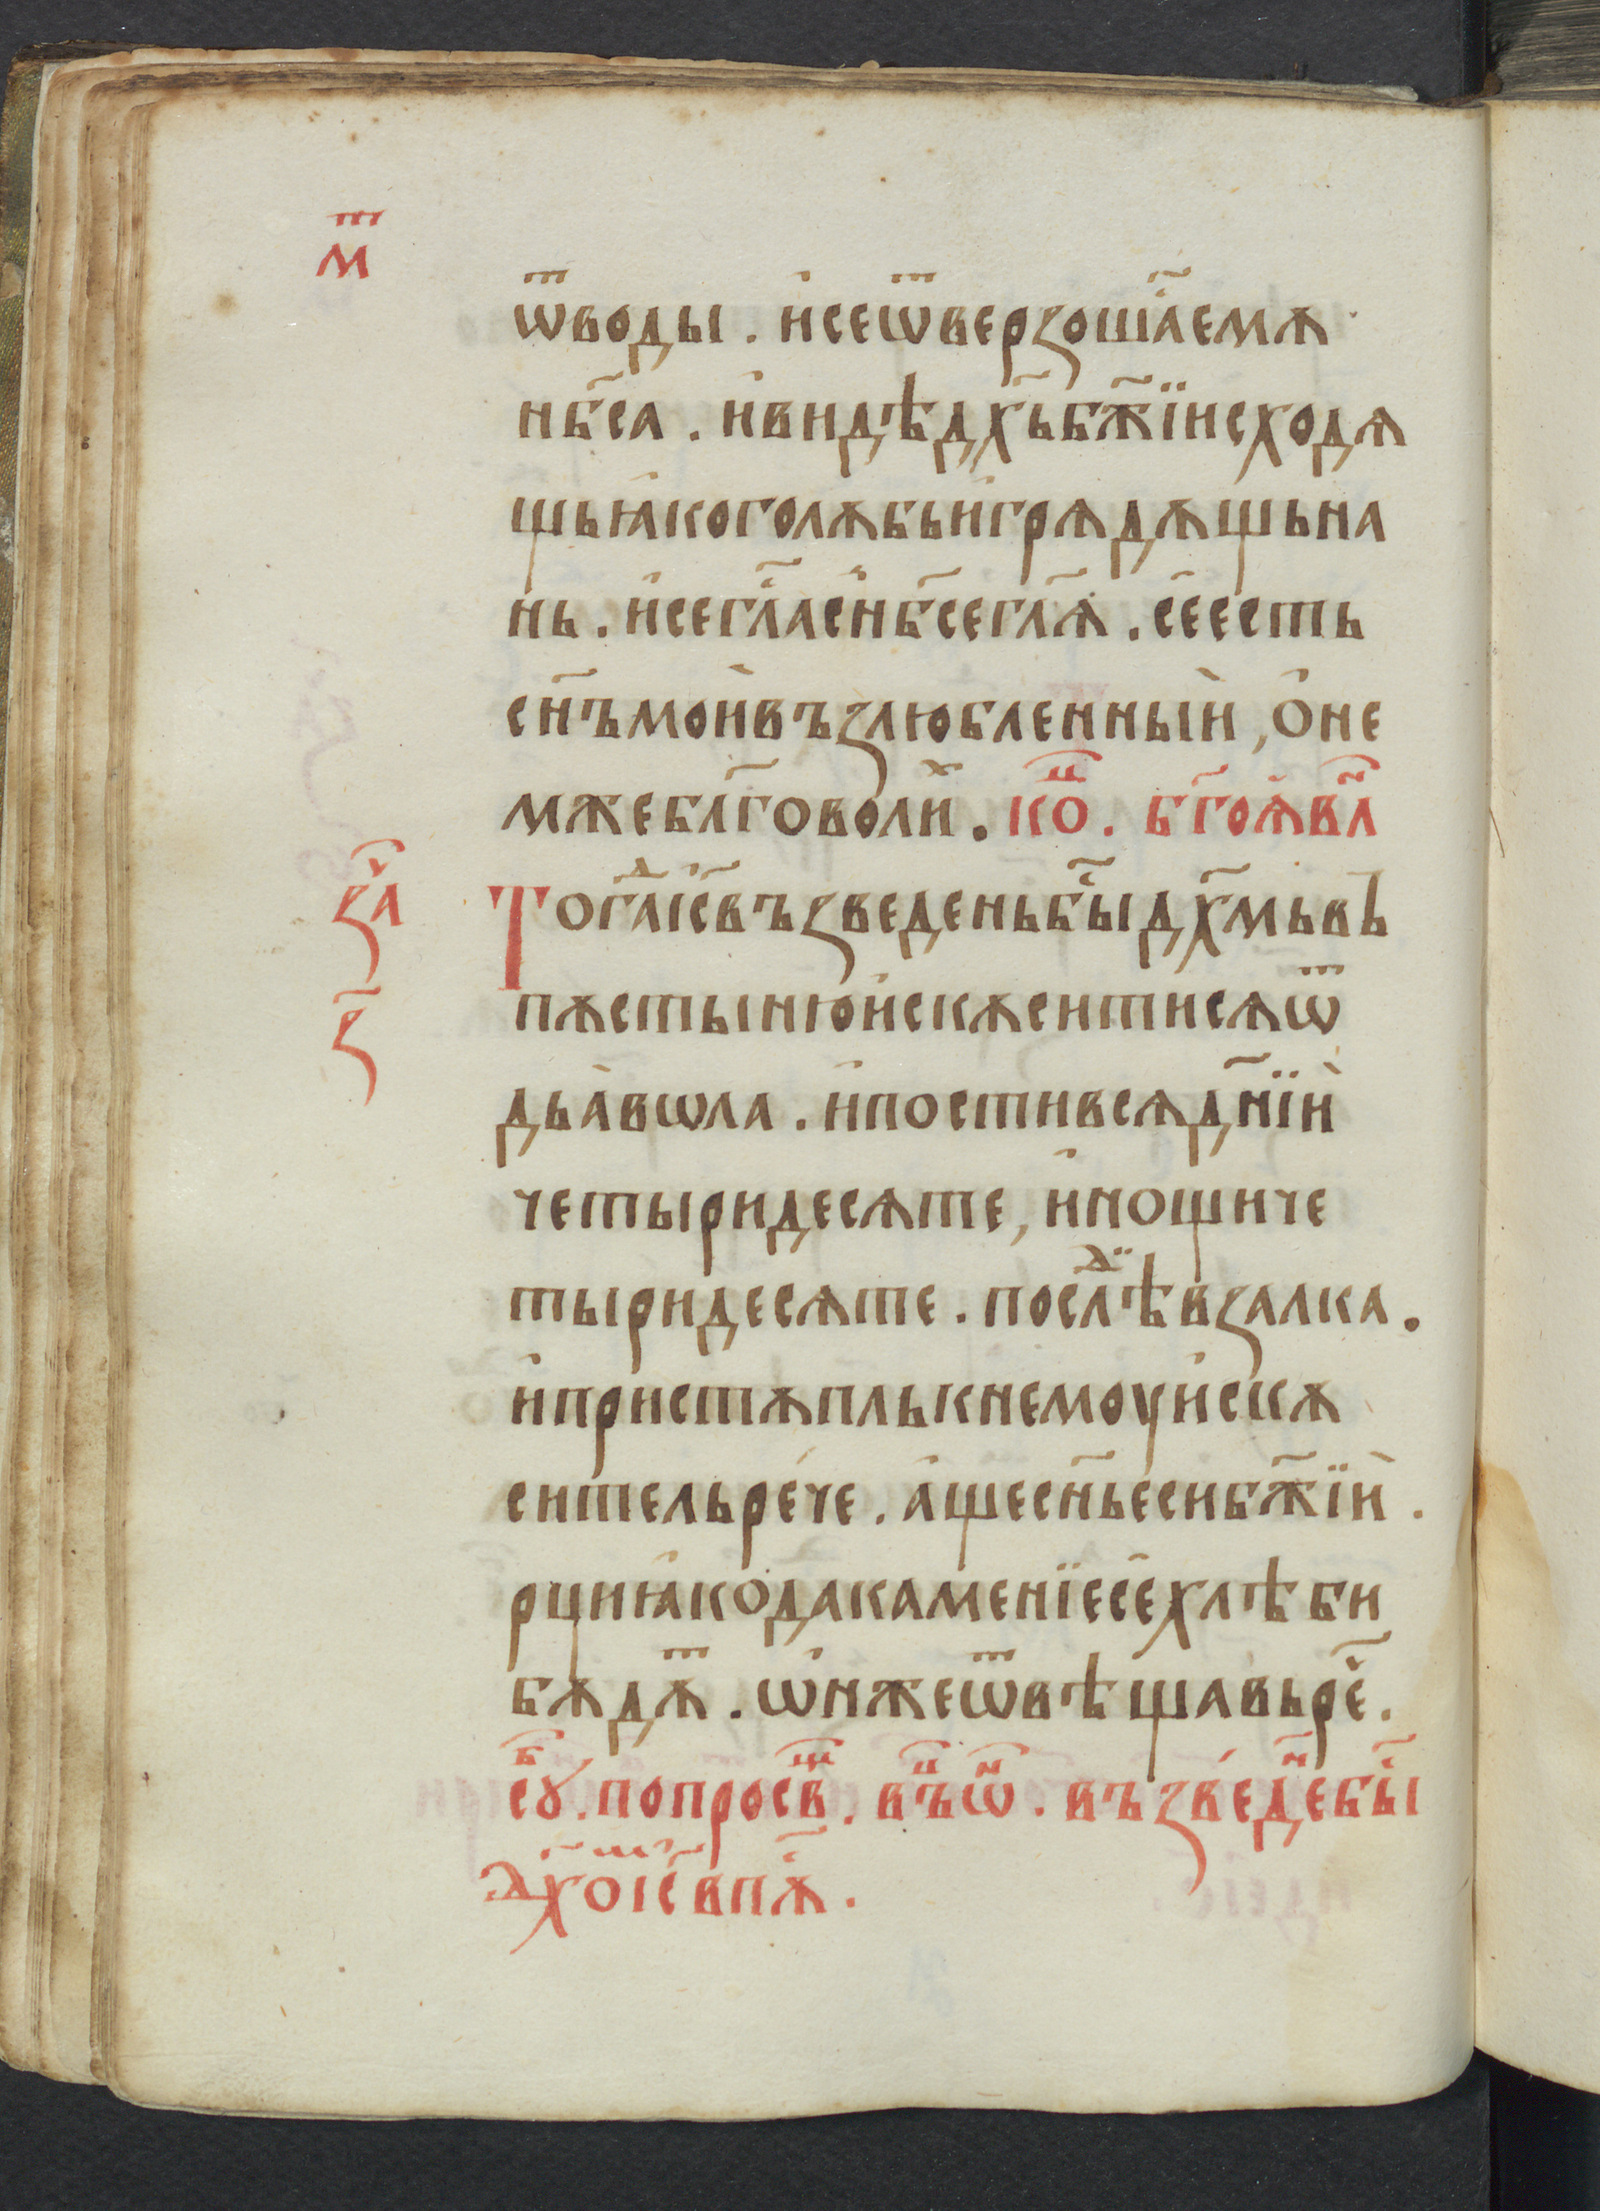 м҃т
ѿводы . и҆сеѿверзошѧ҃емѫ
нб҃са . и҆видѣдх҃ьбж҃їисходѧ
щьꙗ҆коголѫбьи҆грѧдѧщьна
нь . и҆сегл҃асн҆б҃сегл҃ѧ . се҆есть
сн҃ъмои҆въꙁлюбленныи҆ , о҆не
мжебл҃говоли́х . коц҃ . бг҃оꙗ҆влн҃
ꙁа҃ч
Тогдаі҆с҃въꙁведеньбы҃дх҃мьвъ
ꙁ҃
пѫстынюи҆скѫситисѧѿ
дьа҆вѡла . и҆постивсѧдн҃їи
четыридесѧте , и҆нощиче
тыридесѧте . послⷣѣвꙁалка .
и҆пристѫплькнемоуи҆скѫ
сительре́че . а҆щесн҃ьесибж҃їи .
рциꙗ҆кодакаменїесе҆хлѣби
бѫдѫт . ѡ҆нжеѿвѣщавьре҃ .
сꙋб . попросвщ . въпѿ . въꙁведенебы҃
дх҃оі҆с҃впѫ .